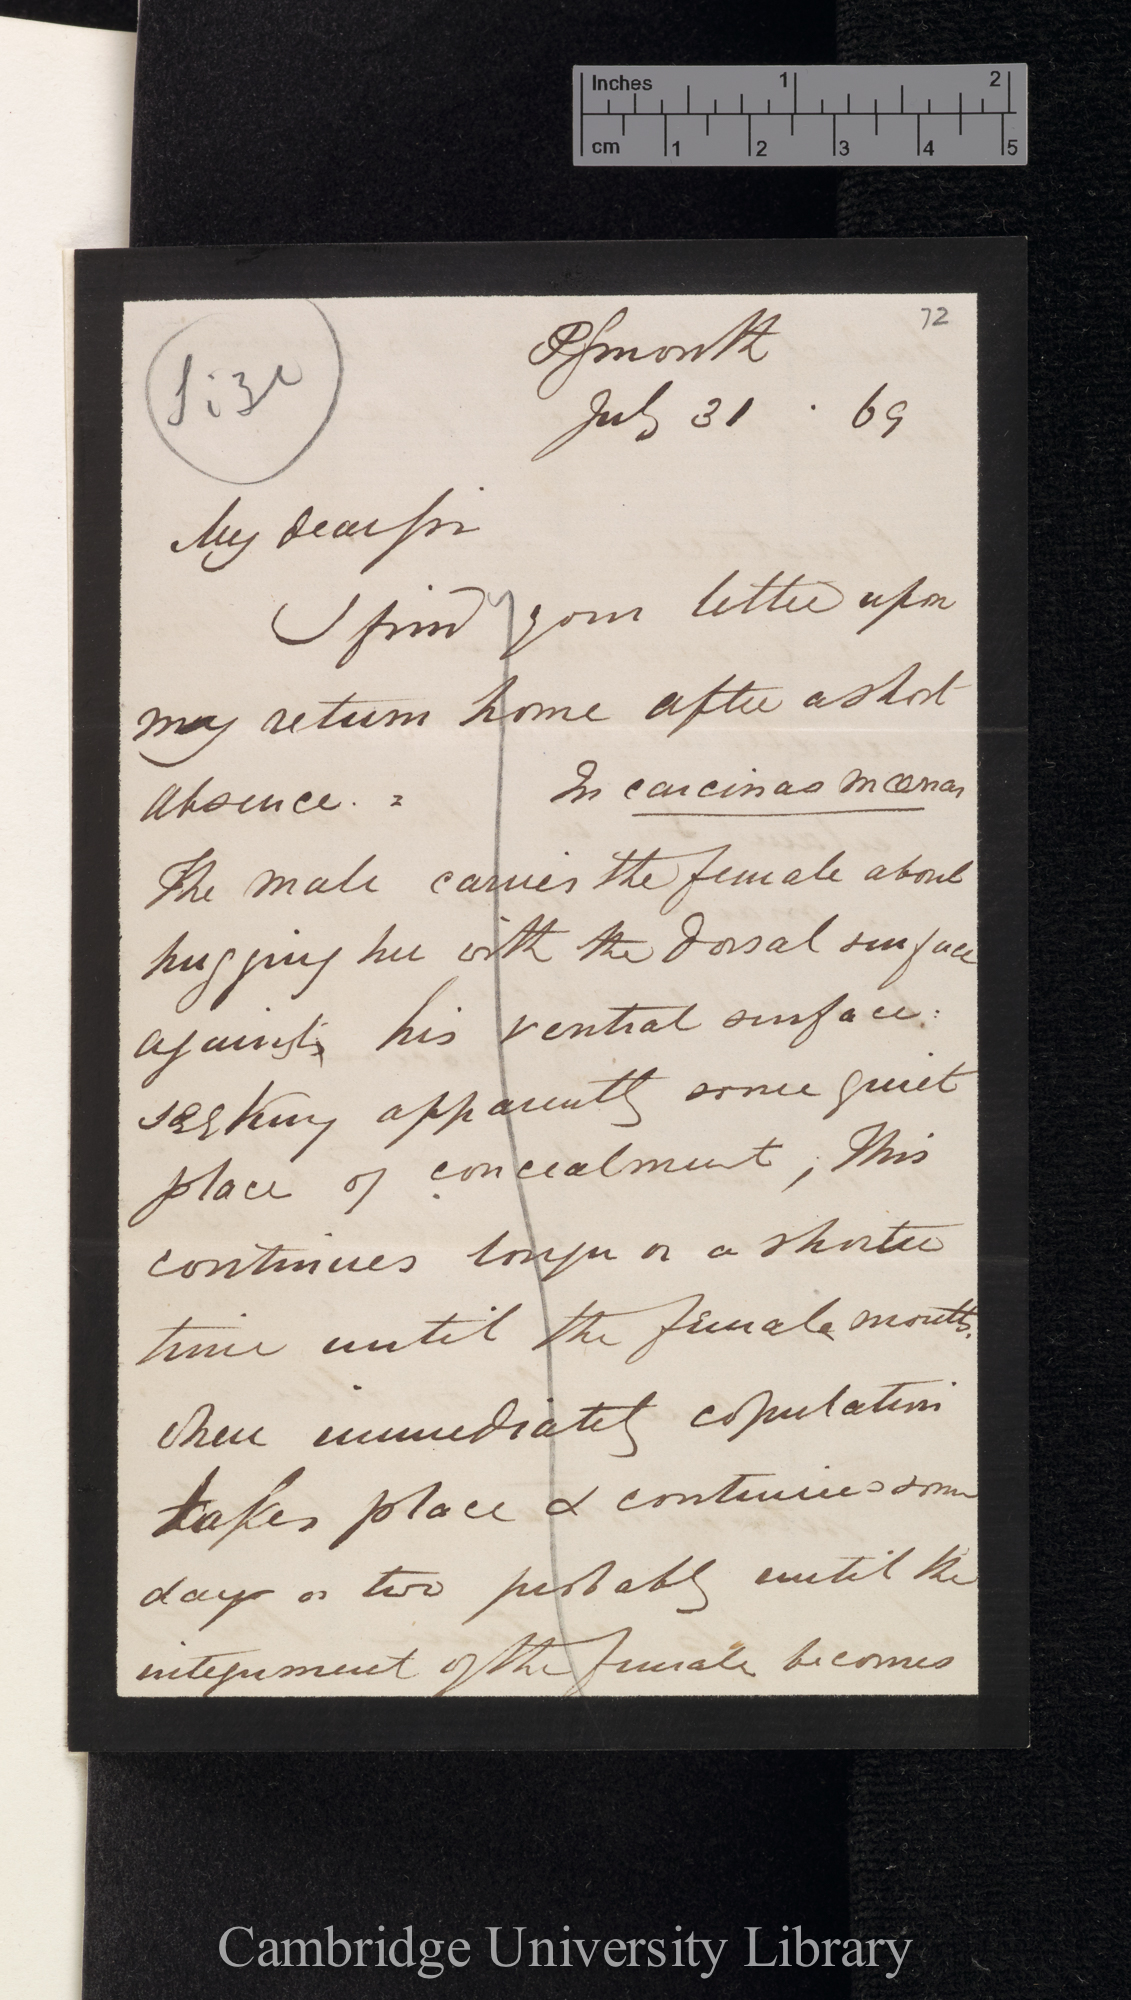 Inches 1 2
cm 1 2 3 4 5
72
Size
Plymouth
July 31 · 69
My dear Sir
I find your letter upon
my return home after a short
absence. = In carcinas mænas
The male carries the female about
hugging her with the dorsal surface
against his ventral surface:
seeking apparently some quiet
place of concealment; This
continues longer or a shorter
time until the female moults.
when immediately copulation
takes place & continues some
day or two probably until the
integument of the female becomes
Cambridge University Library